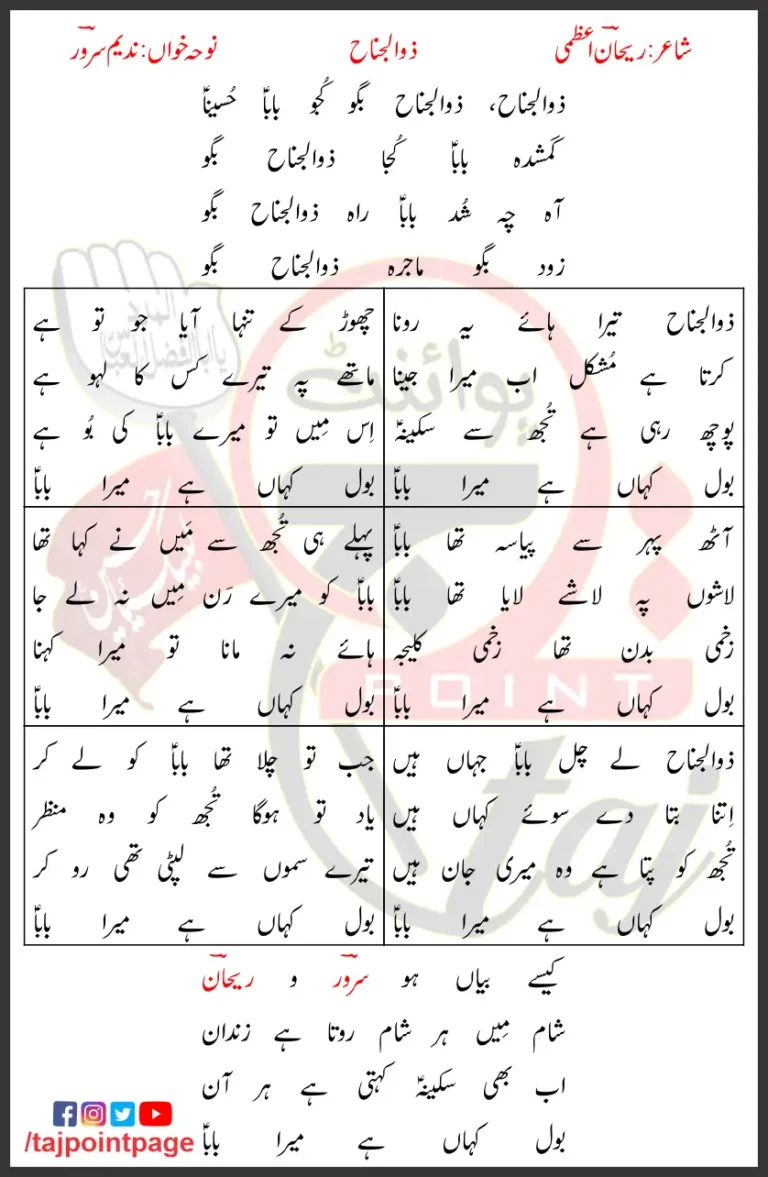 شاعر: ریحانؔ اعظمی ذوالجناح نوحہ خواں: ندیم سرورؔ
ذوالجناح، ذوالجناح بگو کُجُو باباؑ حُسیناؑ
گمشدہ باباؑ کُجا ذوالجناح بگو
آہ چہ شُد باباؑ راہ ذوالجناح بگو
زود بگو ماجرہ ذوالجناح بگو
ذوالجناح تیرا ہائے یہ رونا
کرتا ہے مُشکل اب میرا جینا
پوچھ رہی ہے تُجھ سے سکینہؑ
بول کہاں ہے میرا باباؑ
چھوڑ کے تنہا آیا جو تو ہے
ماتھے پہ تیرے کس کا لہو ہے
اِس مِیں تو میرے باباؑ کی بُو ہے
بول کہاں ہے میرا باباؑ
آٹھ پہر سے پیاسہ تھا باباؑ
لاشوں پہ لاشے لایا تھا باباؑ
زخمی بدن تھا زخمی کلیجہ
بول کہاں ہے میرا باباؑ
پہلے ہی تُجھ سے مَیں نے کہا تھا
باباؑ کو میرے رَن مِیں نہ لے جا
ہائے نہ مانا تو میرا کہنا
بول کہاں ہے میرا باباؑ
ذوالجناح لے چل باباؑ جہاں ہیں
اِتنا بتا دے سوئے کہاں ہیں
تُجھ کو پتا ہے وہ میری جان ہیں
بول کہاں ہے میرا باباؑ
جب تو چلا تھا باباؑ کو لے کر
یاد تو ہوگا تُجھ کو وہ منظر
تیرے سموں سے لپٹی تھی رو کر
بول کہاں ہے میرا باباؑ
کیسے بیاں ہو سرورؔ و ریحانؔ
شام مِیں ہر شام روتا ہے زندان
اب بھی سکینہؑ کہتی ہے ہر آن
بول کہاں ہے میرا باباؑ
/tajpointpage
پوائنٹ
POINT
taj